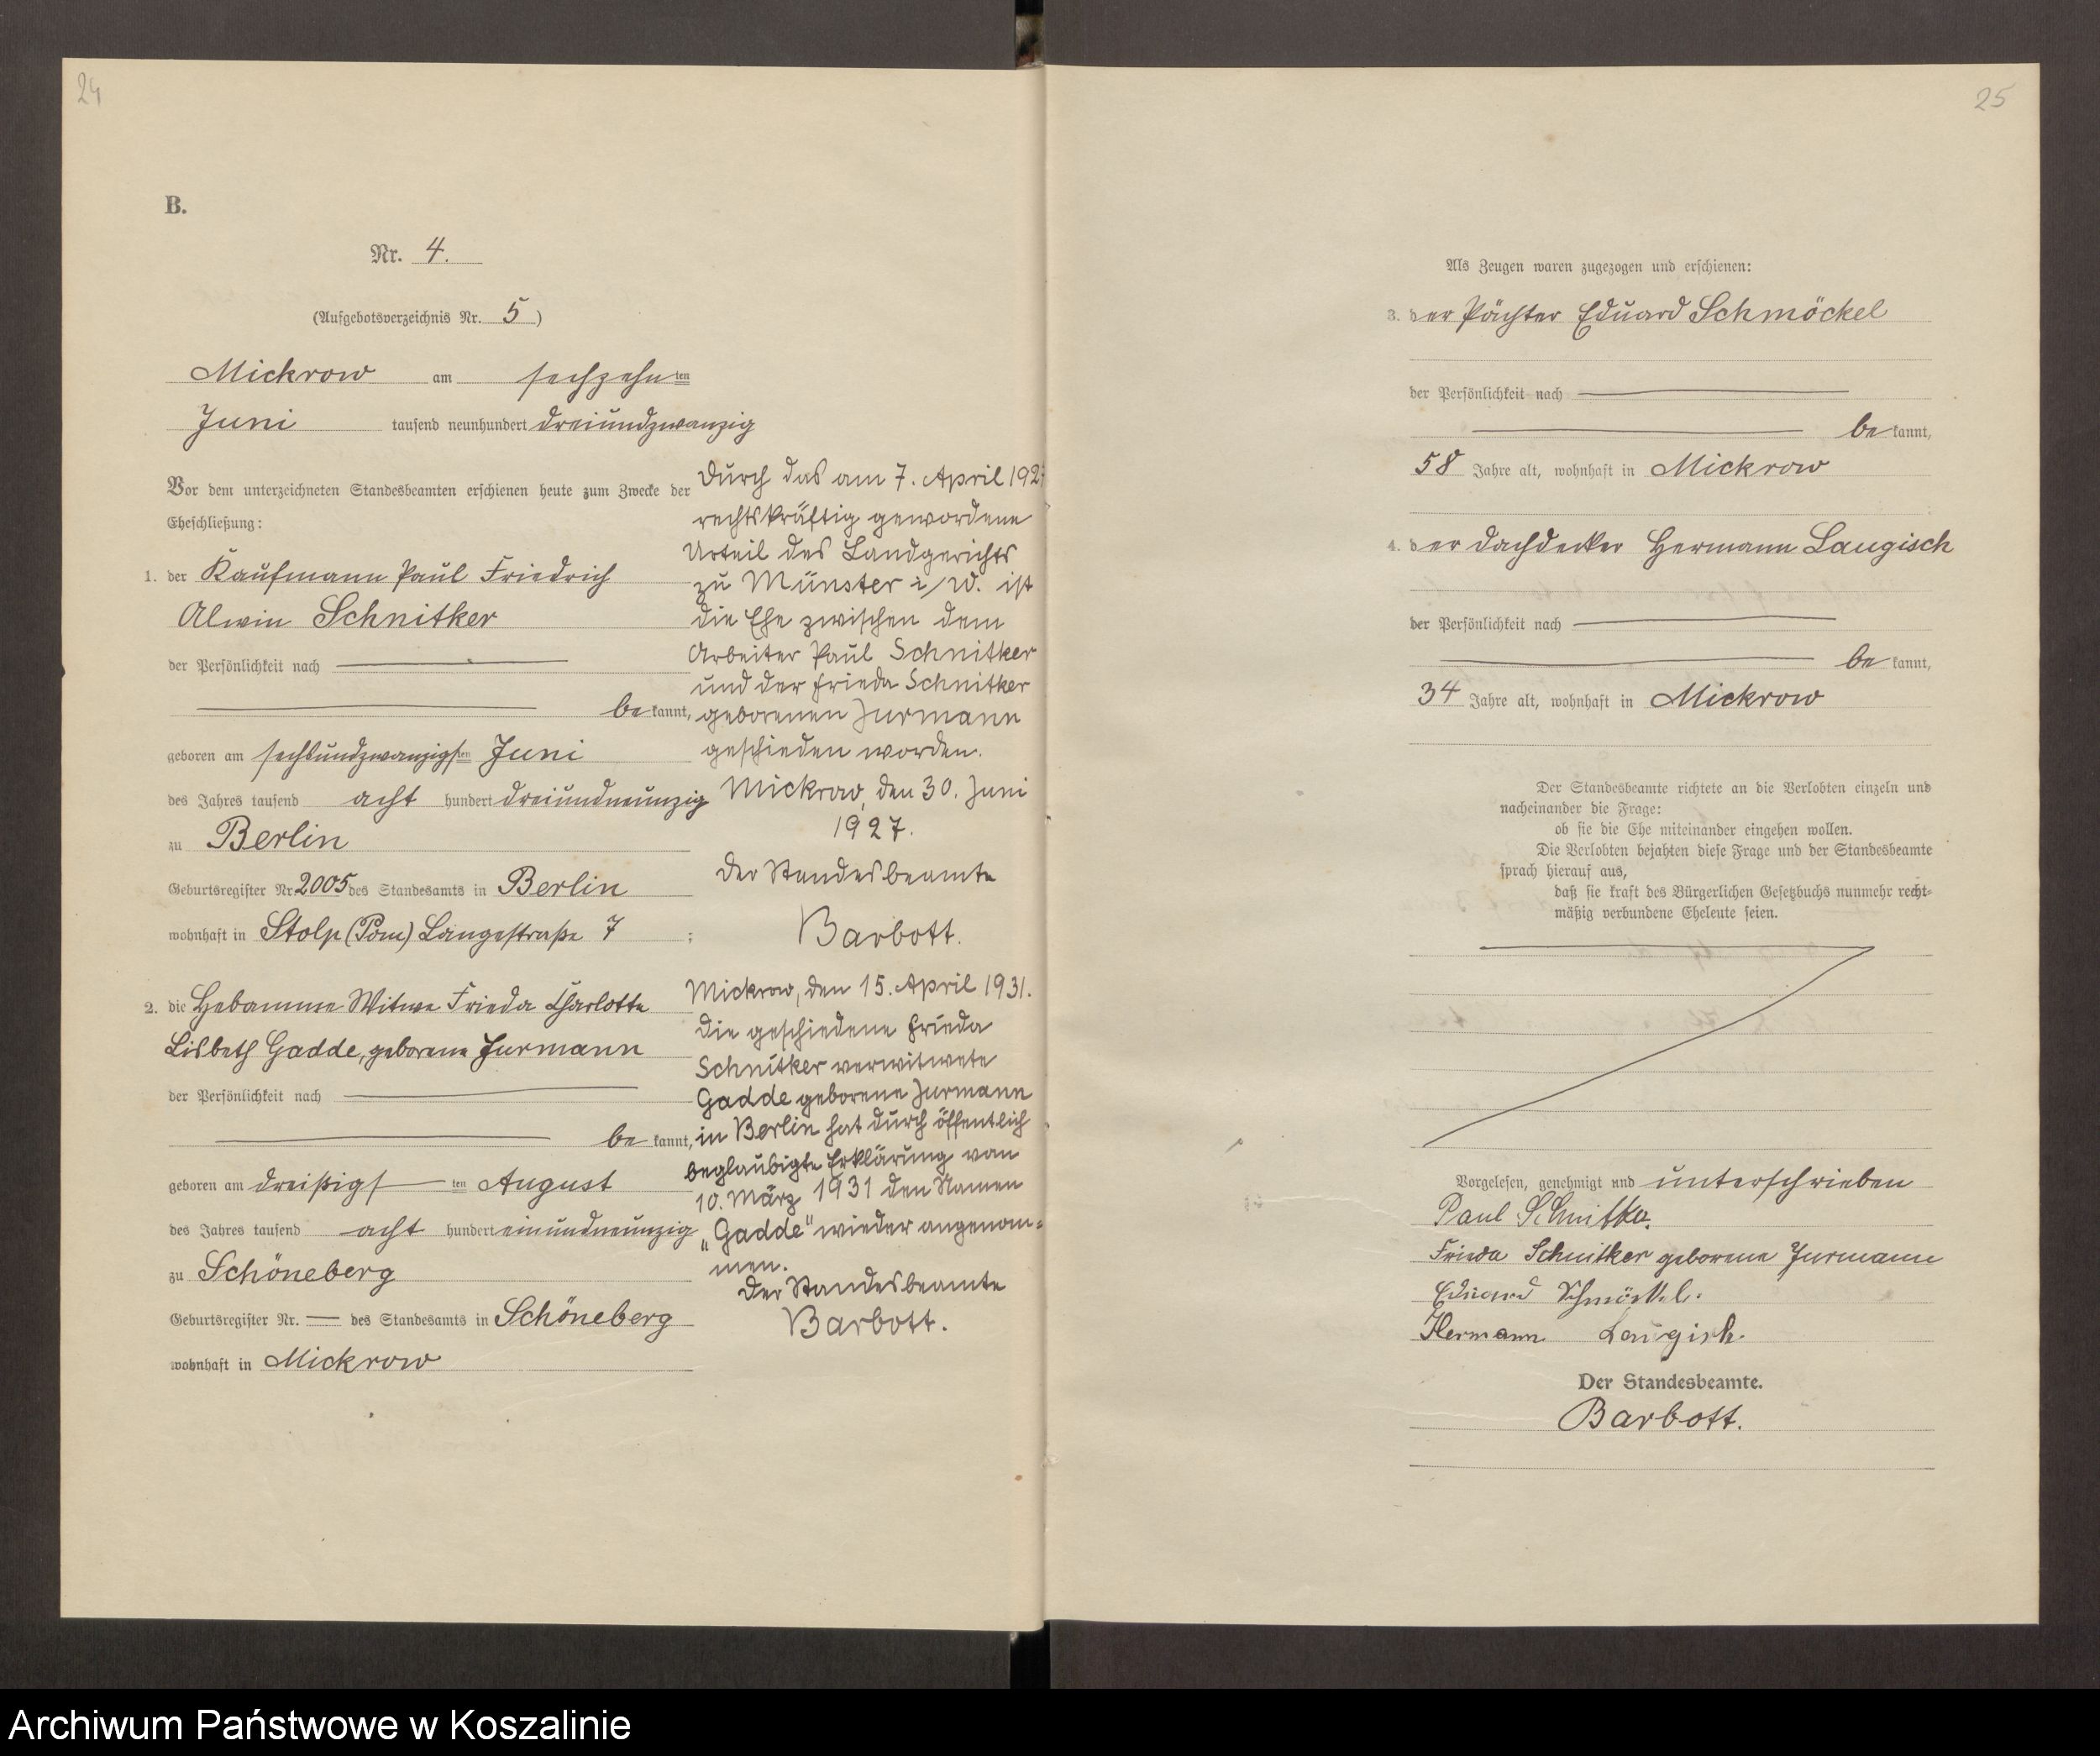 24
B.
Nr. 4.
(Aufgebotsverzeichnis Nr. 5)
Mickrow am sechzehnten
Juni tausend neunhundert dreiundzwanzig
Vor dem unterzeichneten Standesbeamten erschienen heute zum Zwecke der
Eheschließung:
1. der Kaufmann Paul Friedrich
Alwin Schnitker
der Persönlichkeit nach
be kannt,
geboren am sechsundzwanzigsten Juni
des Jahres tausend acht hundert dreiundneunzig
zu Berlin
Geburtsregister Nr. 2005 des Standesamts in Berlin
wohnhaft in Stolp (Pom) Langestraße 7 ;
2. die Hebamme Witwe Frieda Charlotte
Lisbeth Gadde, geborene Jurmann
der Persönlichkeit nach
be kannt,
geboren am dreißigsten August
des Jahres tausend acht hundert einundneunzig
zu Schöneberg
Geburtsregister Nr. — des Standesamts in Schöneberg
wohnhaft in Mickrow
Durch das am 7. April 192
rechtskräftig gewordene
Urteil des Landgerichts
zu Münster i/W. ist
die Ehe zwischen dem
Arbeiter Paul Schnitker
und der Frieda Schnitker
geborenen Jurmann
geschieden worden.
Mickrow, den 30. Juni
1927.
Der Standesbeamte
Barbott.
Mickrow, den 15. April 1931.
Die geschiedene Frieda
Schnitker verwitwete
Gadde geborene Jurmann
in Berlin hat durch öffentlich
beglaubigte Erklärung von
10. März 1931 den Namen
„Gadde" wieder angenom=
men.
Der Standesbeamte
Barbott.
25
Als Zeugen waren zugezogen und erschienen:
3. der Pächter Eduard Schmöckel
der Persönlichkeit nach
be kannt,
58 Jahre alt, wohnhaft in Mickrow
4. der Dachdecker Hermann Laugisch
der Persönlichkeit nach
be kannt,
34 Jahre alt, wohnhaft in Mickrow
Der Standesbeamte richtete an die Verlobten einzeln und
nacheinander die Frage:
ob sie die Ehe miteinander eingehen wollen.
Die Verlobten bejahten diese Frage und der Standesbeamte
sprach hierauf aus,
daß sie kraft des Bürgerlichen Gesetzbuchs nunmehr recht=
mäßig verbundene Eheleute seien.
Vorgelesen, genehmigt und unterschrieben
Paul Schnitker.
Frieda Schnitker geborene Jurmann
Eduard Schmöckel.
Hermann Laugish.
Der Standesbeamte.
Barbott.
Archiwum Państwowe w Koszalinie